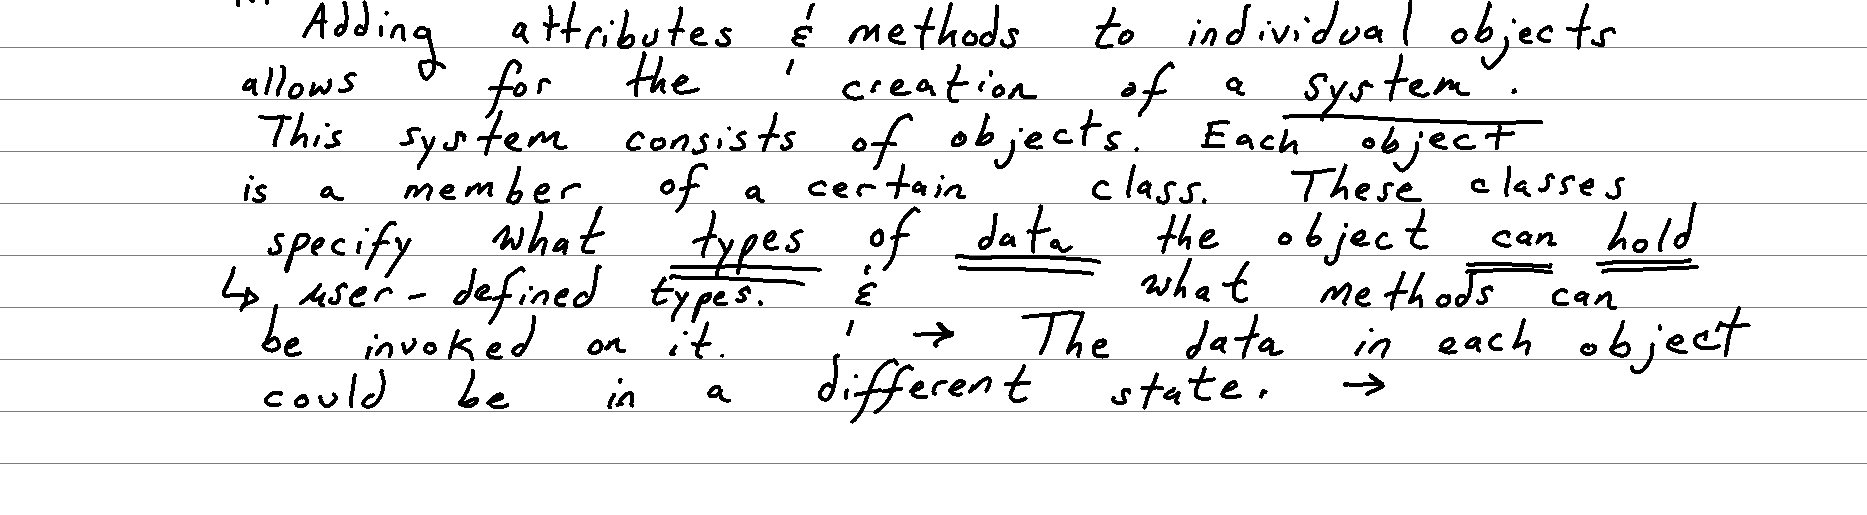 Adding attributes & methods to individual objects
allows for the creation of a system.
This system consists of objects. Each object
is a member of a certain class. These classes
specify what types of data the object can hold
↳ user-defined types. & what methods can
be invoked on it. → The data in each object
could be in a different state. →